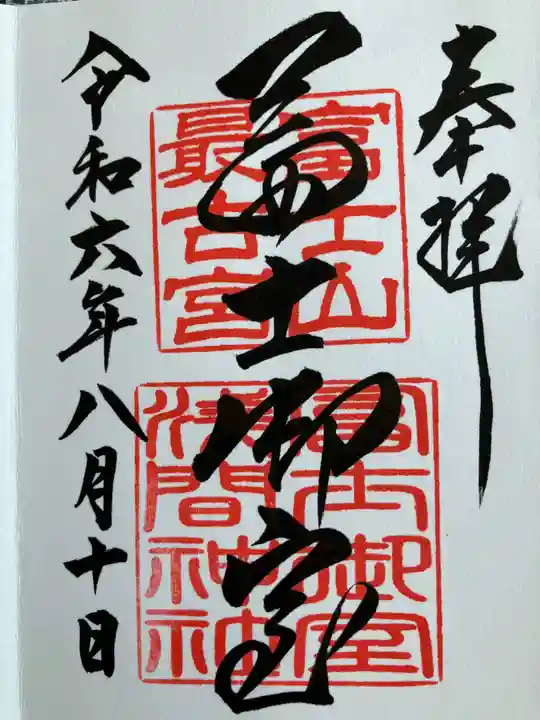 奉拝
富士山
最古宮
冨士御室
冨士御室
浅間神社
令和六年八月十日